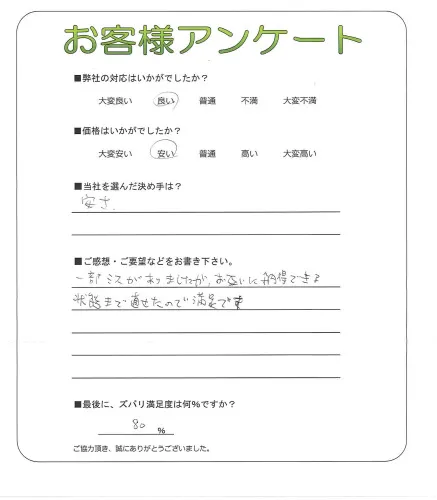 お客様アンケート
■弊社の対応はいかがでしたか？
大変良い 良い 普通 不満 大変不満
■価格はいかがでしたか？
大変安い 安い 普通 高い 大変高い
■当社を選んだ決め手は？
安さ
■ご感想・ご要望などをお書き下さい。
一部ミスがありましたが、お互いに納得できる
状態まで直せたので満足です
■最後に、ズバリ満足度は何%ですか？
80 %
ご協力頂き、誠にありがとうございました。